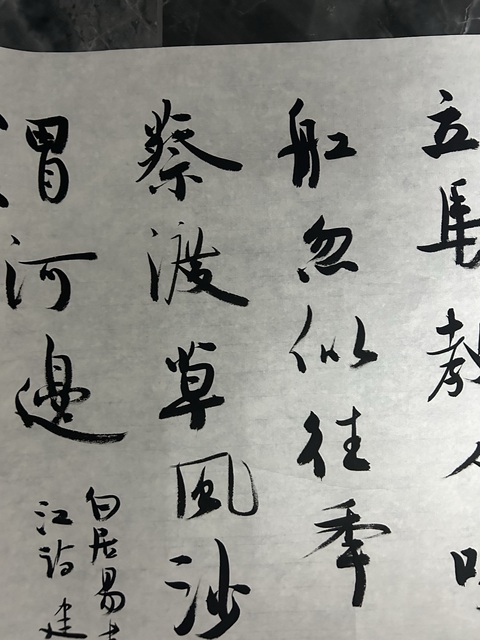 立馬教
舡忽似往年
蔡渡草風沙
渭河邊
白居易
江詩建